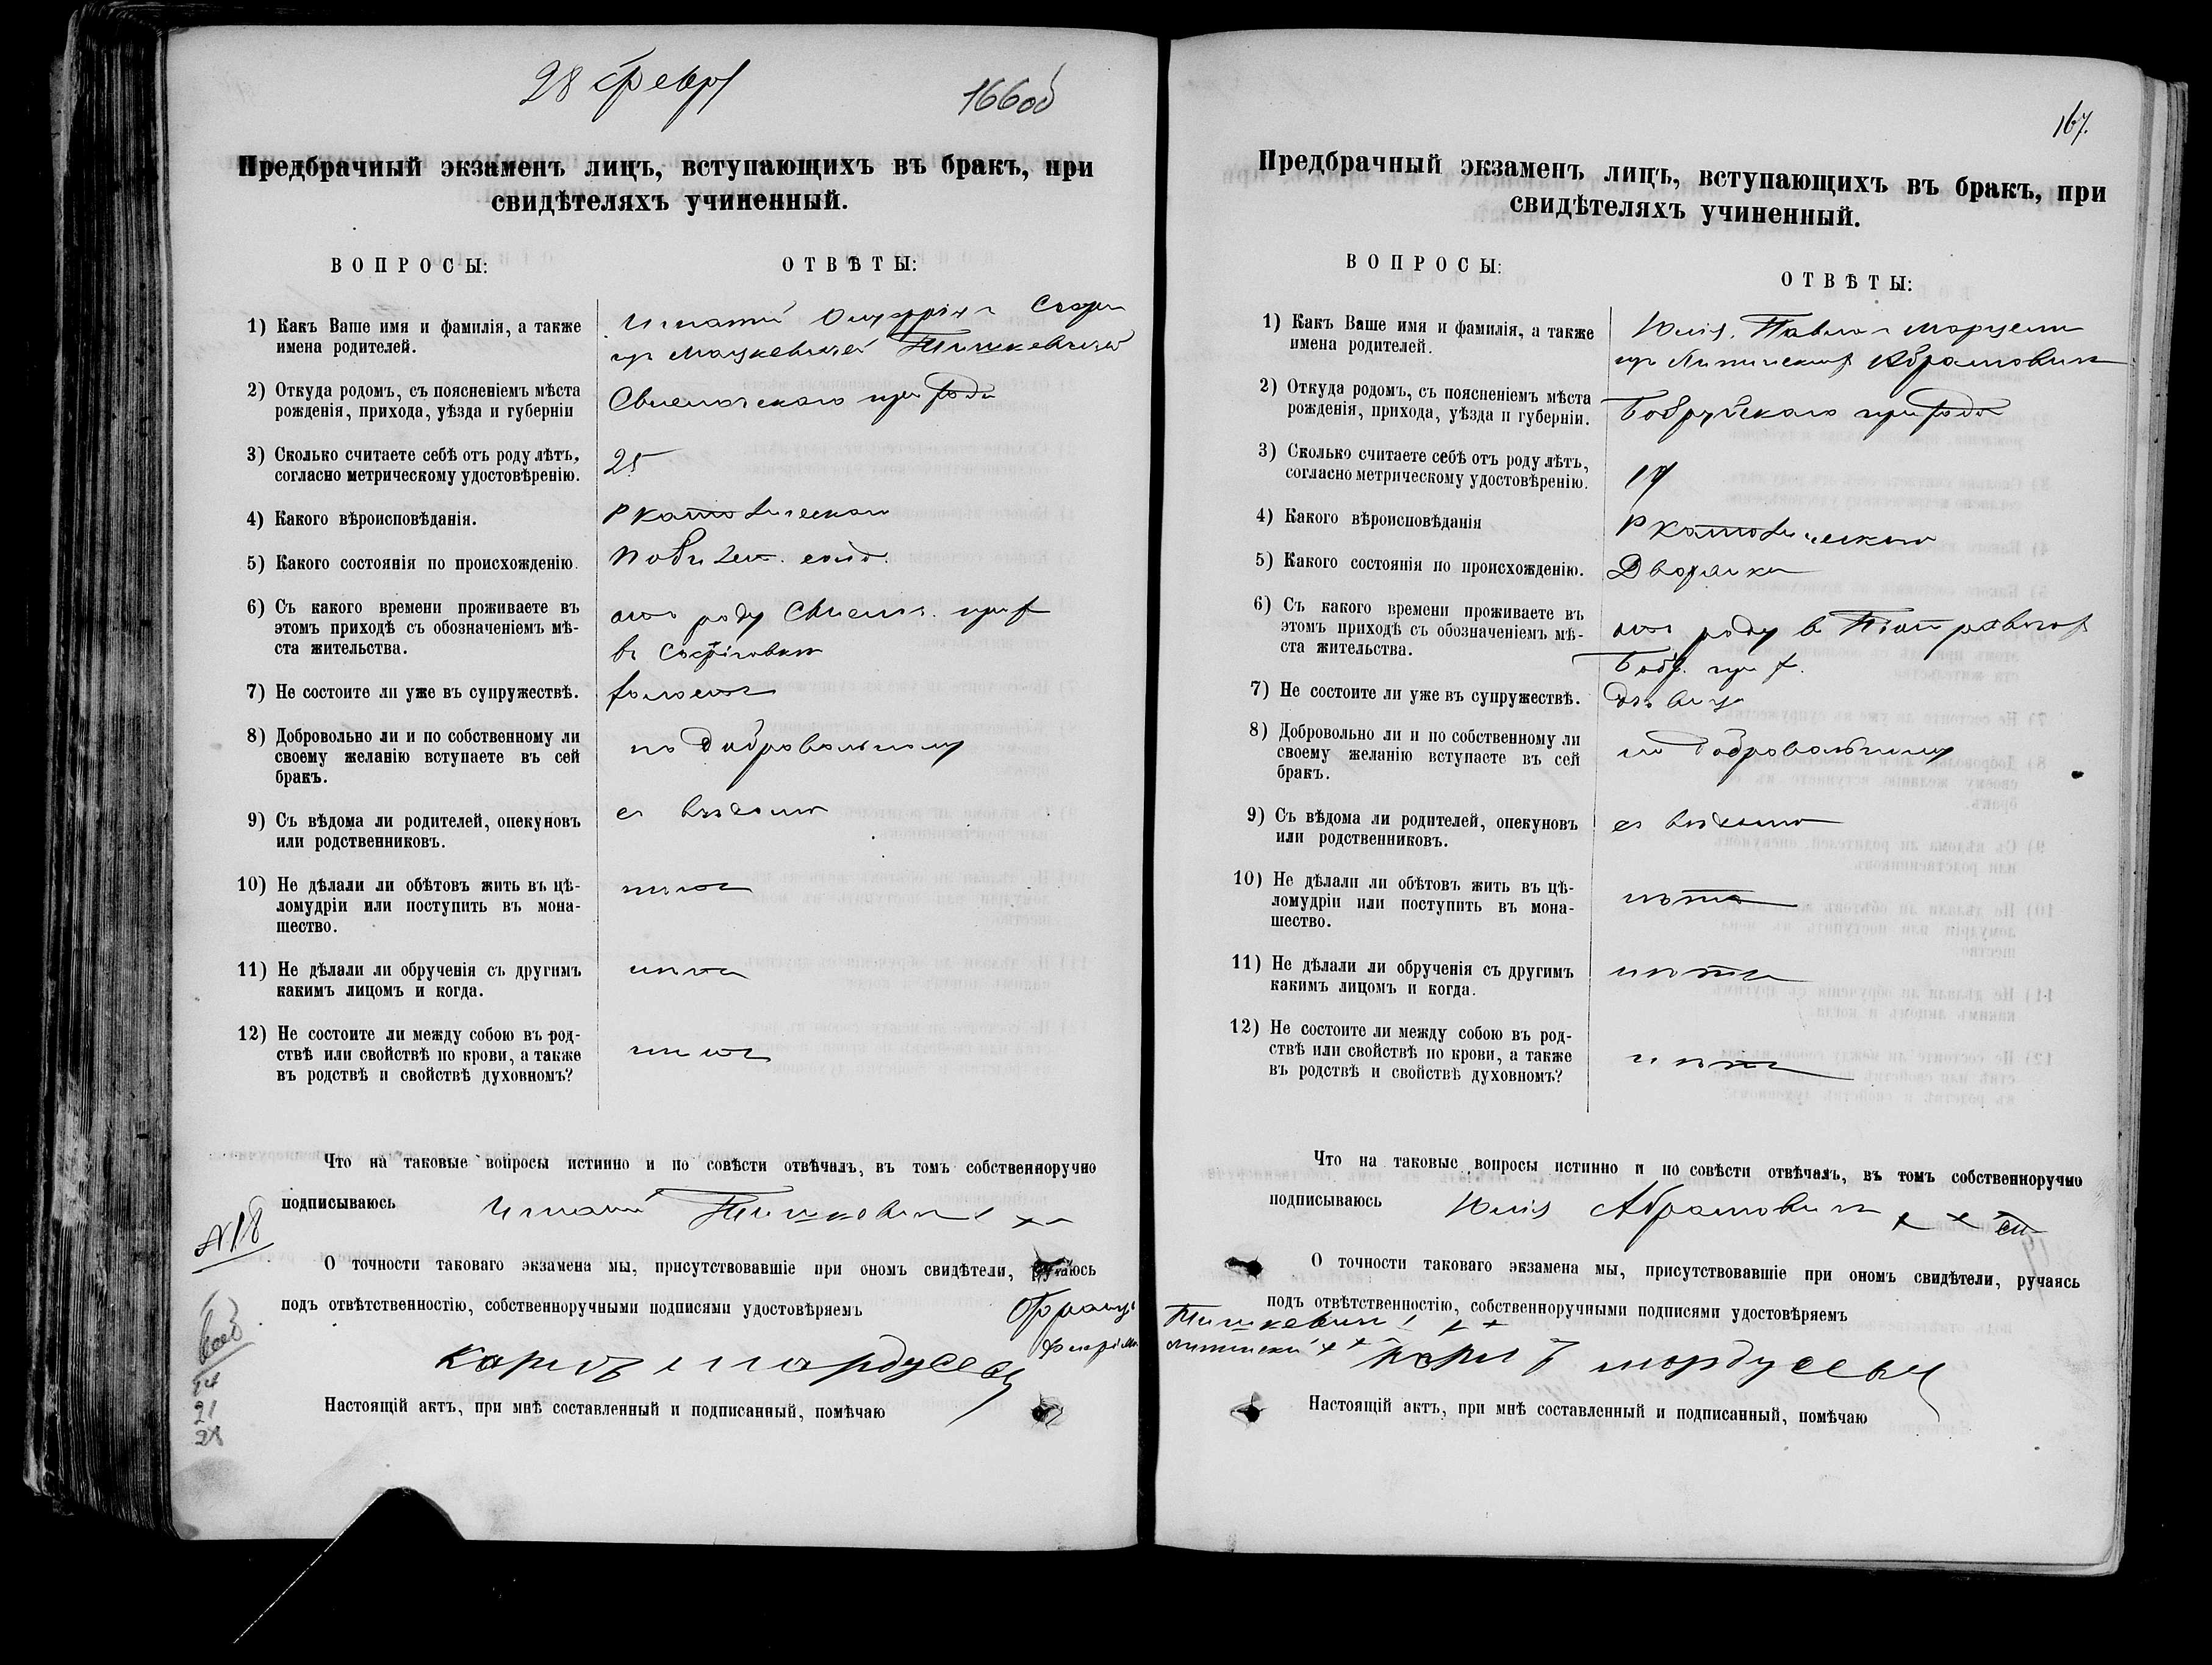 28 февр
166об
Предбрачный экзаменъ лицъ, вступающихъ въ бракъ, при
свидѣтеляхъ учиненный.
ВОПРОСЫ:
ОТВѢТЫ:
1) Какъ Ваше имя и фамилія, а также
имена родителей.
Игнатій Онуфрій
Тишкевичъ
2) Откуда родомъ, съ поясненіемъ мѣста
рожденія, прихода, уѣзда и губерніи
прихода
3) Сколько считаете себѣ отъ роду лѣтъ,
согласно метрическому удостовѣренію.
25
4) Какого вѣроисповѣданія.
Р католическаго
5) Какого состоянія по происхожденію.
6) Съ какого времени проживаете въ
этомъ приходѣ съ обозначеніемъ мѣ-
ста жительства.
отъ роду
7) Не состоите ли уже въ супружествѣ.
холостъ
8) Добровольно ли и по собственному ли
своему желанію вступаете въ сей
бракъ.
по добровольному
9) Съ вѣдома ли родителей, опекуновъ
или родственниковъ.
съ вѣдома
10) Не дѣлали ли обѣтовъ жить въ цѣ-
ломудріи или поступить въ мона-
шество.
нѣтъ
11) Не дѣлали ли обрученія съ другимъ
какимъ лицомъ и когда.
нѣтъ
12) Не состоите ли между собою въ род-
ствѣ или свойствѣ по крови, а также
въ родствѣ и свойствѣ духовномъ?
нѣтъ
Что на таковые вопросы истинно и по совѣсти отвѣчалъ, въ томъ собственноручно
подписываюсь Игнатій Тишкевичъ
№18
О точности таковаго экзамена мы, присутствовавшіе при ономъ свидѣтели, ручаюсь
подъ отвѣтственностію, собственноручными подписями удостовѣряемъ
14
21
28
Настоящій актъ, при мнѣ составленный и подписанный, помѣчаю
167.
Предбрачный экзаменъ лицъ, вступающихъ въ бракъ, при
свидѣтеляхъ учиненный.
ВОПРОСЫ:
ОТВѢТЫ:
1) Какъ Ваше имя и фамилія, а также
имена родителей.
Юлія, Павла
Абрамовичъ
2) Откуда родомъ, съ поясненіемъ мѣста
рожденія, прихода, уѣзда и губерніи.
Бобруйскаго прихода
3) Сколько считаете себѣ отъ роду лѣтъ,
согласно метрическому удостовѣренію.
4) Какого вѣроисповѣданія
Р католическаго
5) Какого состоянія по происхожденію.
Дворянка
6) Съ какого времени проживаете въ
этомъ приходѣ съ обозначеніемъ мѣ-
ста жительства.
отъ роду в
Бобр. прих.
7) Не состоите ли уже въ супружествѣ.
дѣвица
8) Добровольно ли и по собственному ли
своему желанію вступаете въ сей
бракъ.
по добровольному
9) Съ вѣдома ли родителей, опекуновъ
или родственниковъ.
съ вѣдома
10) Не дѣлали ли обѣтовъ жить въ цѣ-
ломудріи или поступить въ мона-
шество.
нѣтъ
11) Не дѣлали ли обрученія съ другимъ
какимъ лицомъ и когда.
нѣтъ
12) Не состоите ли между собою въ род-
ствѣ или свойствѣ по крови, а также
въ родствѣ и свойствѣ духовномъ?
нѣтъ
Что на таковые вопросы истинно и по совѣсти отвѣчалъ, въ томъ собственноручно
подписываюсь Юлія Абрамовичъ
О точности таковаго экзамена мы, присутствовавшіе при ономъ свидѣтели, ручаясь
подъ отвѣтственностію, собственноручными подписями удостовѣряемъ
Тишкевичъ
Настоящій актъ, при мнѣ составленный и подписанный, помѣчаю